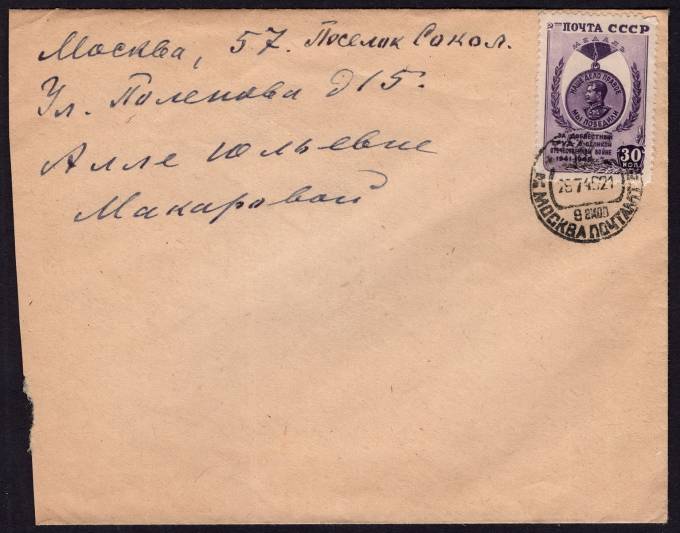 Москва, 57. Поселок Сокол.
Ул. Поленова д 15.
Алле Юльевне
Макаровой
ПОЧТА СССР
МЕДАЛЬ
НАШЕ ДЕЛО ПРАВОЕ
МЫ ПОБЕДИЛИ
ЗА ДОБЛЕСТНЫЙ
ТРУД В ВЕЛИКОЙ
ОТЕЧЕСТВЕННОЙ ВОЙНЕ
1941-1945
30
КОП
МОСКВА ПОЧТАМТ